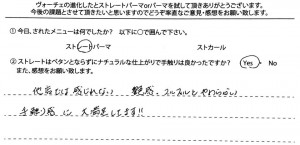 ヴォーチェの進化したとストレートパーマorパーマを試して頂きありがとうございます。
今後の課題とさせて頂きたいと思いますのでどうぞ率直なご意見・感想をお願い致します。
① 今日、されたメニューは何でしたか? 以下に○で囲んで下さい。
ストレートパーマ ストカール
② ストレートはペタンとならずにナチュラルな仕上がりで手触りは良かったですか? Yes No
また、感想をお願い致します。
他店では感じれない 艶感、スルスルとやわらかい
手触り感に大満足してます!!